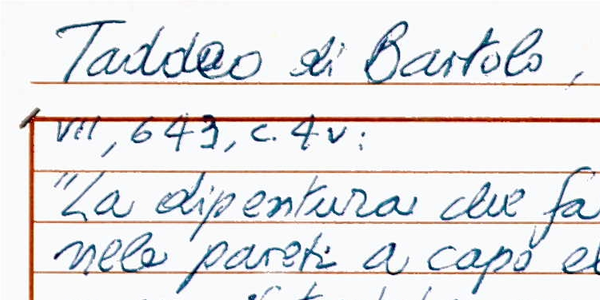 Taddeo di Bartolo,
VII, 643, c. 4v:
"La dipentura che fa
nele pareti a capo el